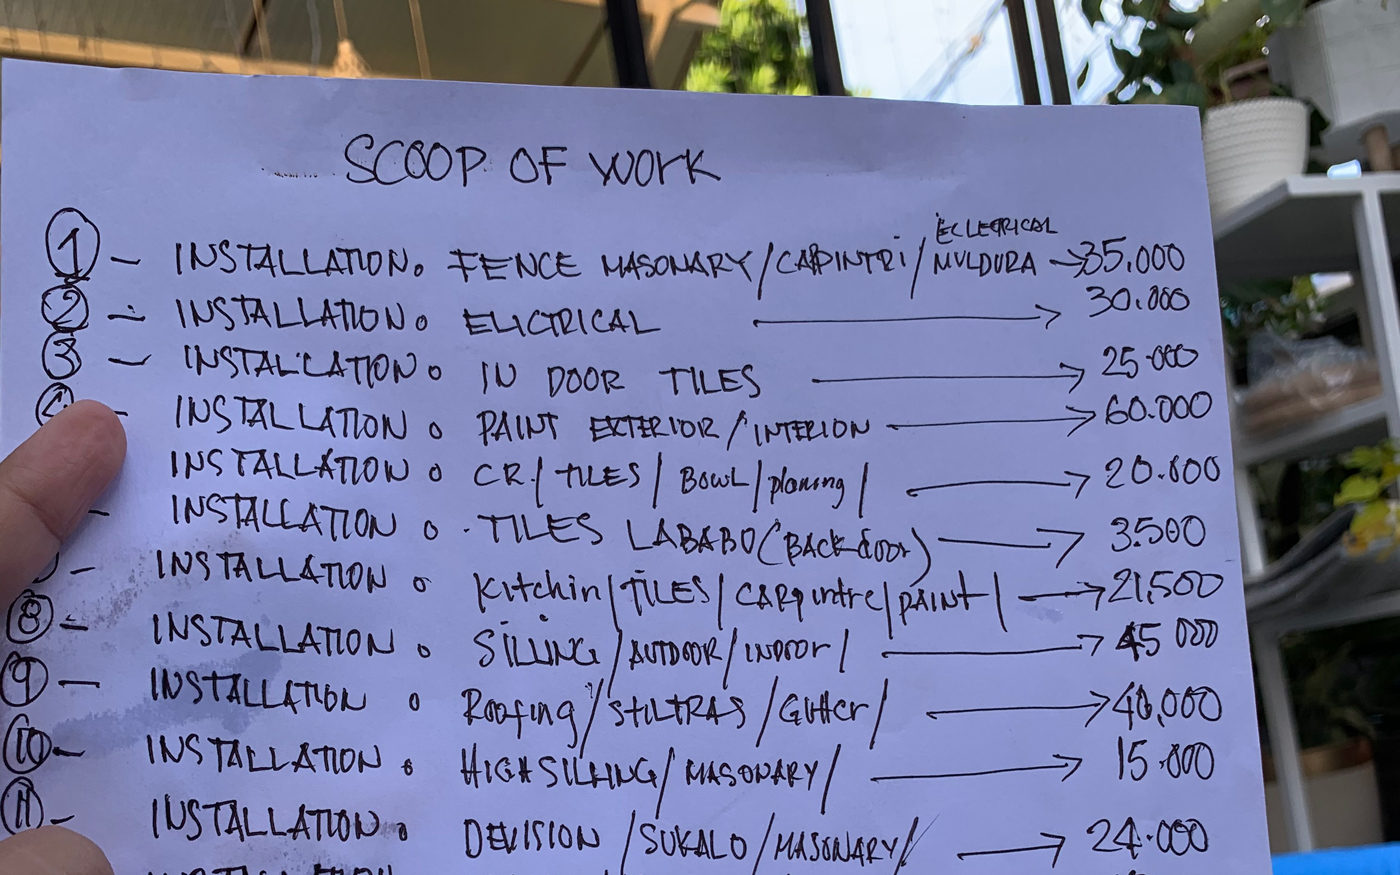 SCOOP OF WORK
1 - INSTALLATION. FENCE MASONARY/CARPINTRI/ECLETRICAL MULDURA → 35.000
2 - INSTALLATION. ELICTRICAL → 30.000
3 - INSTALLATION. IN DOOR TILES → 25.000
4 - INSTALLATION. PAINT EXTERIOR/INTERIOR → 60.000
INSTALLATION. CR/TILES/BOWL/planing/ → 20.000
- INSTALLATION. TILES LABABO (BACK-door) → 3.500
- INSTALLATION. Kitchin/TILES/CARpintre/PAINT/ → 21,500
8 - INSTALLATION. SILLING/AUTDOOR/INDOOR/ → 45 000
9 - INSTALLATION. Roofing/STILTRAS/GuTTer/ → 40,000
10 - INSTALLATION. HIGH SILLING/MASONARY/ → 15.000
11 - INSTALLATION. DEVISION/SUKALO/MASONARY/ → 24.000